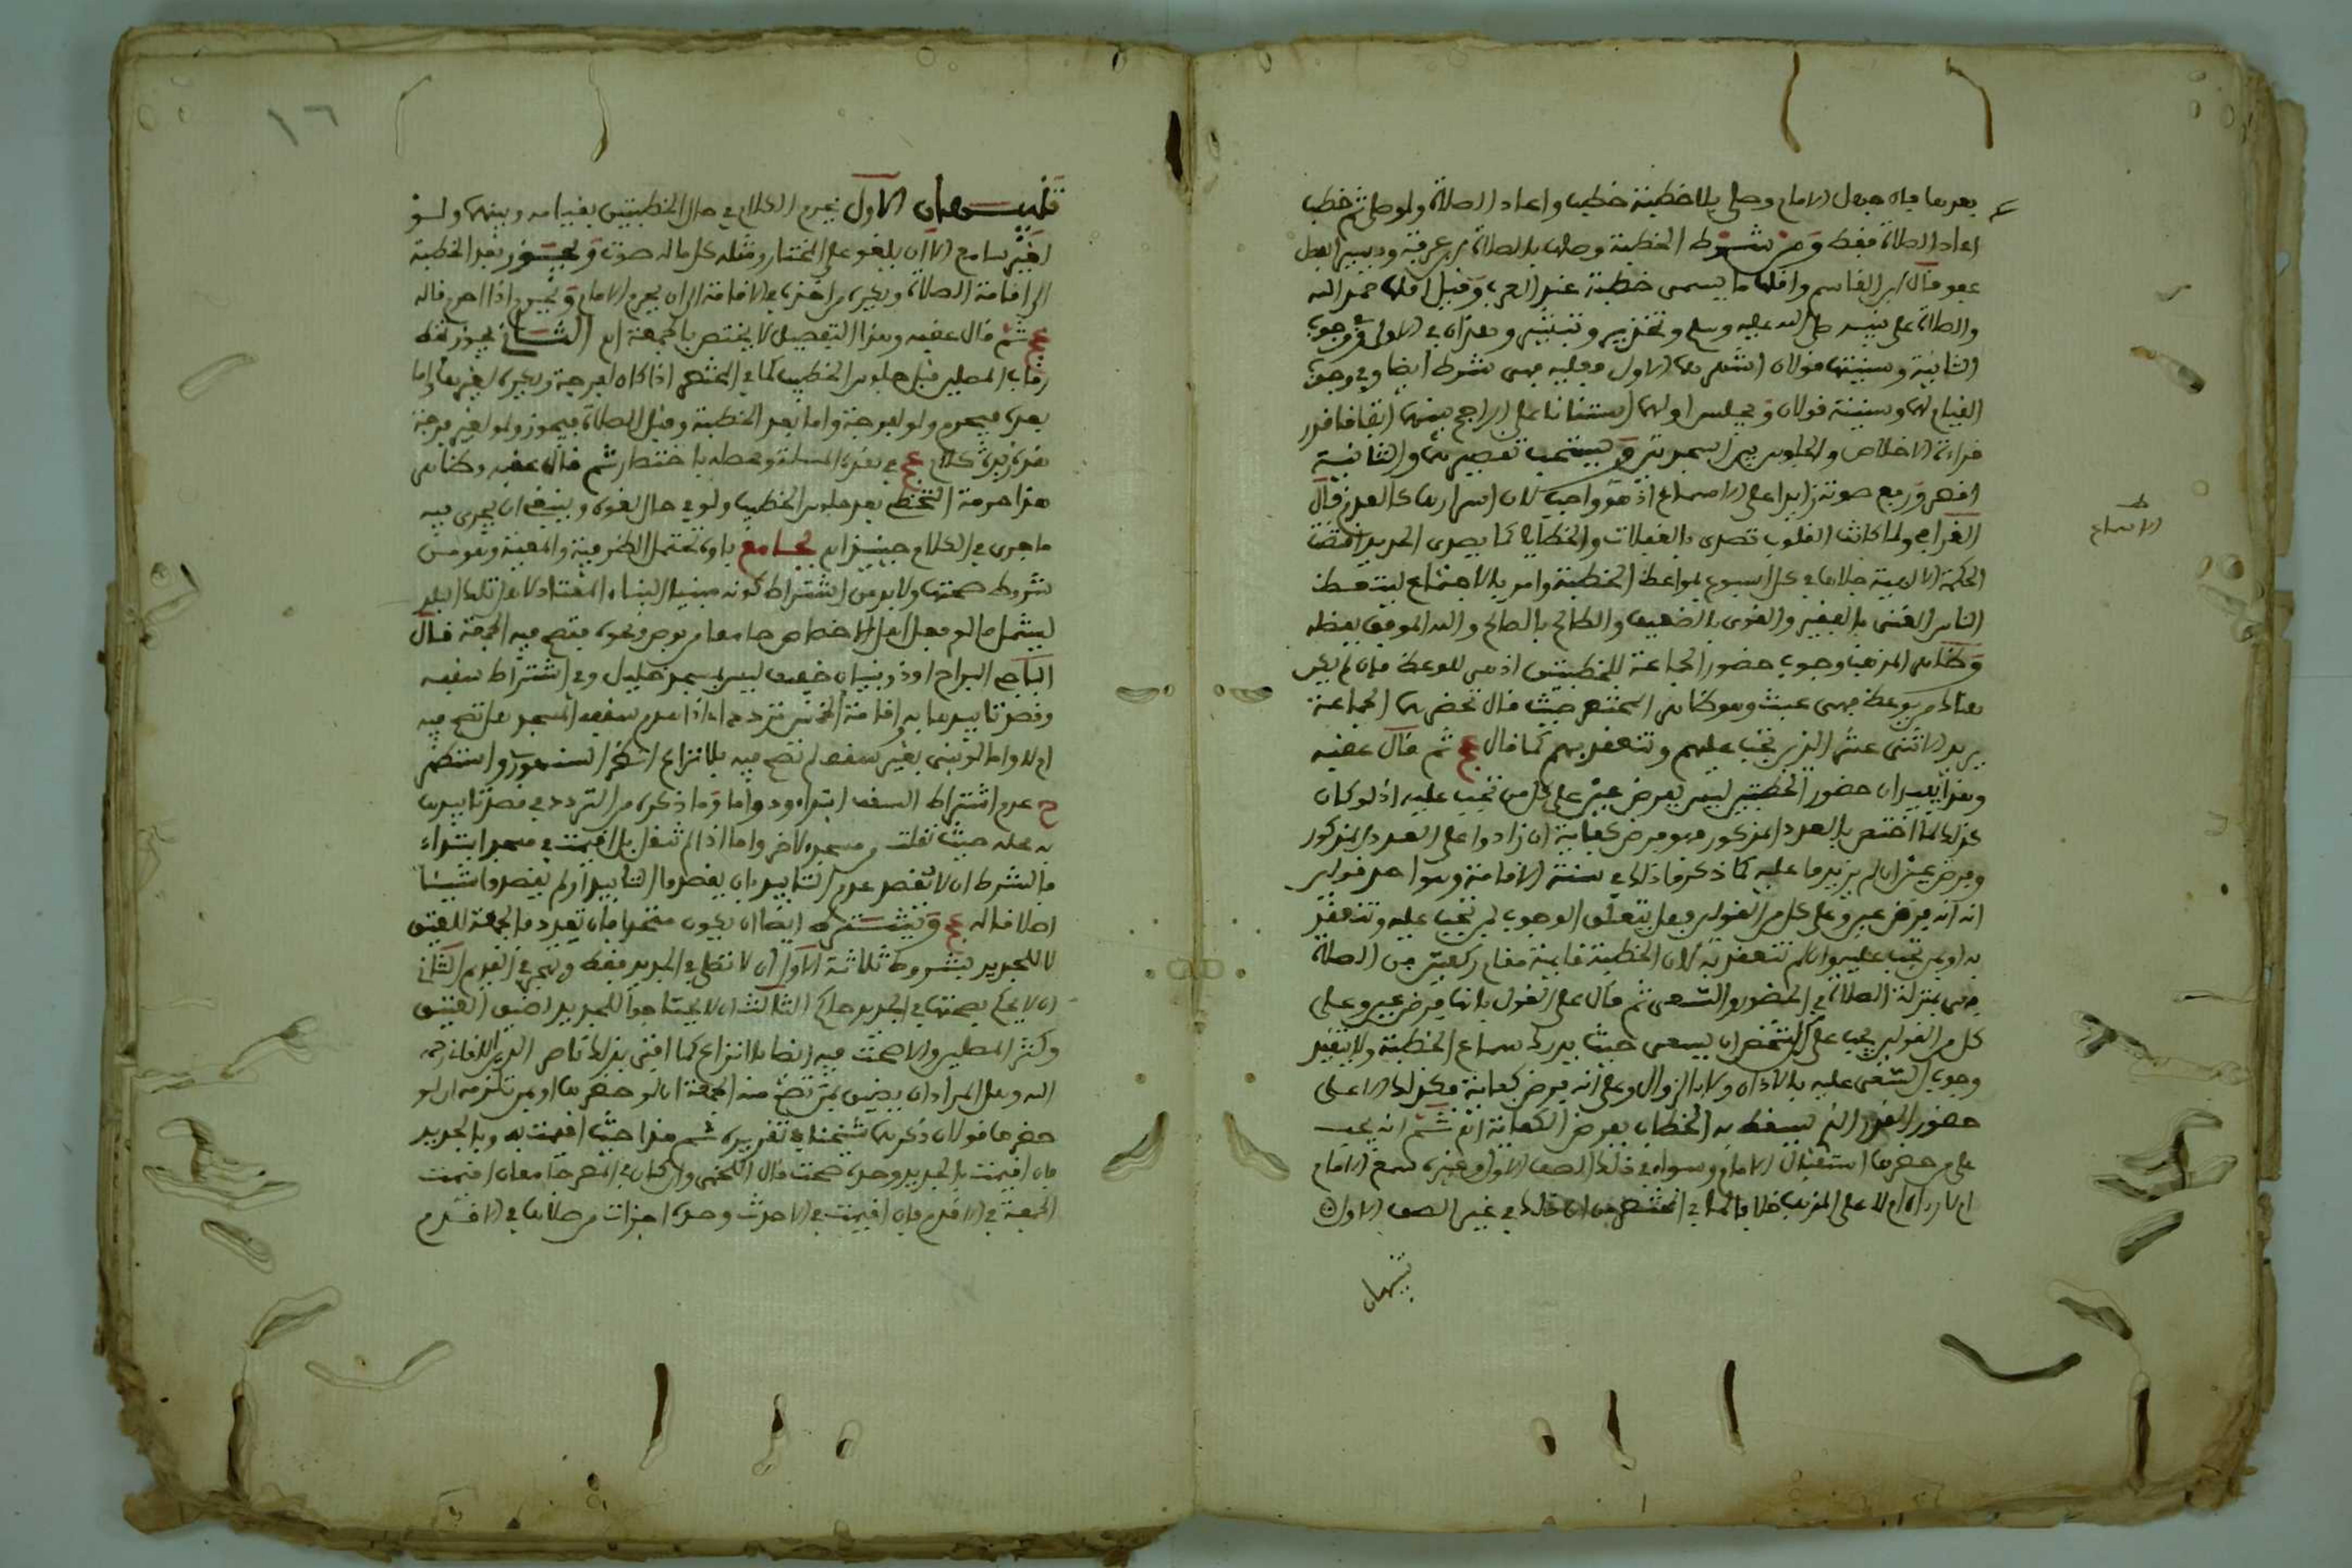 بعدها فان جهل الامام وصلى بلا خطبة خطب واعاد الصلاة ولو صلى ثم خطب
اعاد الصلاة فقط ومن شروط الخطبة وصلها بالصلاة
قال ابن القاسم واقلها ما يسمى خطبة عند العرب وقيل اقلها حمد الله
والصلاة على نبيه صلى الله عليه وسلم وتحذير وتبشير وهذان في الاولى وفي وجوب
الثانية وسنيتها قولان اشهرهما الاول فعليه فهي شرط ايضا وفي وجوب
القيام لهما وسنيته قولان ويجلس اولهما استنانا على الراجح بينهما اتفاقا قدر
قراءة الاخلاص والجلوس بين السجدتين ويستحب تقصيرهما والثانية
اقصر ورفع صوته زايدا على الاسماع اذ هو واجب لان اسرارها كالعدم قال
القرافي ولما كانت القلوب تصدى بالغفلات والخطايا كما يصدى الحديد اقتضت
الحكمة الالهية جلاها في كل اسبوع بمواعظ الخطبة وامر بالاجتماع ليتعظ
الناس الغنى بالفقير والقوى بالضعيف والطالح بالصالح والله الموفق بفضله
وظاهر المذهب وجوب حضور الجماعة للخطبتين اذ هى للوعظ فان لم يكن
هناك من يوعظ فهى عبث وهو ظاهر المختصر حيث قال تحضرهما الجماعة
يريد الاثنى عشر الذين تجب عليهم وتنعقد بهم كما قال عج ثم قال عقبه
وهذا يفيد ان حضور الخطبتين ليس بفرض عين على كل من تجب عليه اذ لو كان
كذلك لما اختص بالعدد المذكور فهو فرض كفاية ان زادوا على العدد المذكور
وفرض عين ان لم يزيدوا عليه كما ذكروا ذلك في سنة الاقامة وهو احد قولين
انه انه فرض عين وعلى كل من القولين فهل يتعلق الوجوب بمن تجب عليه وتنعقد
به او بمن تجب عليه وان لم تنعقد به لان الخطبة قايمة مقام ركعتين من الصلاة
فهى بمنزلة الصلاة في الحضور والسعى ثم قال على القول بانها فرض عين وعلى
كل من القولين يجب على الشخص ان يسعى حيث يدرك سماع الخطبة ولا يتقيد
وجوب السعى عليه بالاذان ولا بالزوال وعلى انه فرض كفاية فكذلك الا على
حضور العدد الذي يسقط به الخطاب بفرض الكفاية اه ثم انه يجب
على من حضرها استقبال الامام وسواء في ذلك الصف الاول وغيره سمع الامام
ام لا راه ام لا على المذهب خلافا لما في المختصر من ان ذلك في غير الصف الاول
تنبيهان
الاسماع
١٦
تنبيهان الاول يحرم الكلام في حال الخطبتين بقيامه وبينهما ولو
لغير سامع الا ان يلغو على المختار ومثله كل ماله صوت ويجوز بعد الخطبة
الى اقامة الصلاة ويكره من اخذه في الاقامة الى ان يحرم الامام ويحرم اذا احرم قاله
عج ثم قال عقبه وهذا التفصيل لا يختص بالجمعة اه الثاني يجوز تخطي
رقاب المصلين قبل جلوس الخطيب كما في المختصر اذا كان لفرجة ويكره لغيرها واما
بعده فيحرم ولو لفرجة واما بعد الخطبة وقبل الصلاة فيجوز ولو لغير فرجة
هذه زبدة كلام عج في هذه المسئلة ومحطه باختصار ثم قال عقبه وظاهر
هذا حرمة التخطي بعد جلوس الخطيب ولو في حال لغوه وينبغي ان يجرى فيه
ما جرى في الكلام حينيذ اه بجامع باوه تحتمل الظرفية والمعية وهو من
شروط صحتها ولا بد من اشتراط كونه مبنيا البناء المعتاد لاهل تلك البلد
ليشمل ما لو فعل اهل الاخصاص جامعا من بوص ونحوه فتصح فيه الجمعة قال
الباجي البراح او ذو بنيان خفيف ليس بمسجد خليل وفي اشتراط سقفه
وقصد تاييدها به واقامة الخمس تردد اه اذا هدم سقف المسجد هل تصح فيه
ام لا واما لو بني بغير سقف لم تصح فيه بلا نزاع انظر السنهوري واستظهر
ح عدم اشتراط السقف ابتداء ودواما وما ذكره من التردد في قصد تابيدها
به محله حيث نقلت من مسجد لاخر واما اذا لم تنقل بل اقيمت في مسجد ابتداء
فالشرط ان لا يقصد عدم التابيد بان يقصدوا التابيد او لم يقصدوا شيئا
اصلا قاله عج ويشترط ايضا ان يكون متحدا فان تعدد فالجمعة للعتيق
لا للجديد بشروط ثلاثة الاول ان لا تصلى في الجديد فقط وتهجر في القديم الثاني
ان لا يحكم بصحتها في الجديد حاكم الثالث ان لا يحتاجوا للجديد لضيق العتيق
وكثر المصلين والا صحت فيه ايضا بلا نزاع كما افتى بذلك ناصر الدين اللقاني رحمه
الله وهل المراد ان يضيق بمن تصح منه الجمعة ان لو حضرها او بمن تلزمه ان لو
حضرها قولان ذكرهما شيخنا في تقريره ثم هذا حيث اقيمت به وبالجديد
فان اقيمت بالجديد وحده صحت قال اللخمي وان كان في المصر جامعان اقيمت
الجمعة في الاقدم فان اقيمت في الاحدث وحده اجزات من صلاها في الاقدم